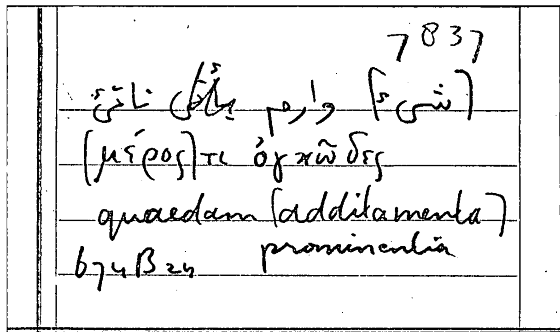 7837
(شيء) وارم ناتئ
(μέρος) τι ὀγκῶδες
quaedam (additamenta)
prominentia
674B24